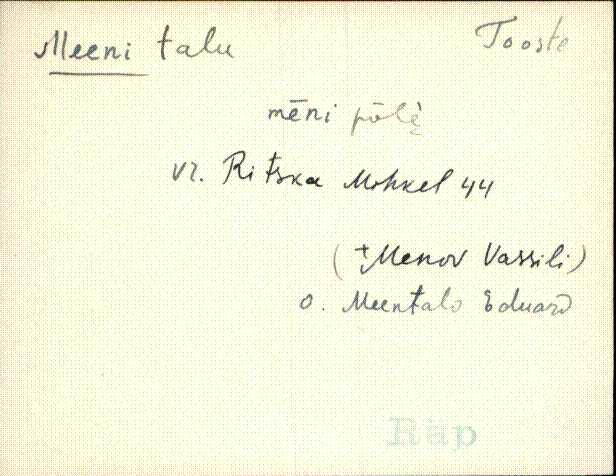 Meeni talu Tooste
mēni pōlè̬
vr. Ritska Mihkel 44
(†Menov Vassili)
o. Meentalo Eduard
Räp